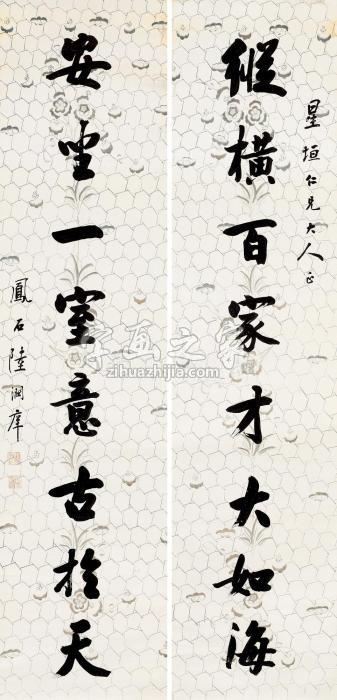 星垣仁兄大人正
縱橫百家才大如海
安坐一室意古於天
鳳石陸潤庠
字画之家
zihuazhijia.com